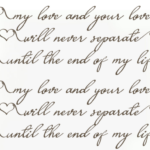 my love and your love
will never separate
until the end of my lif
my love and your love
will never separate
until the end of my lif